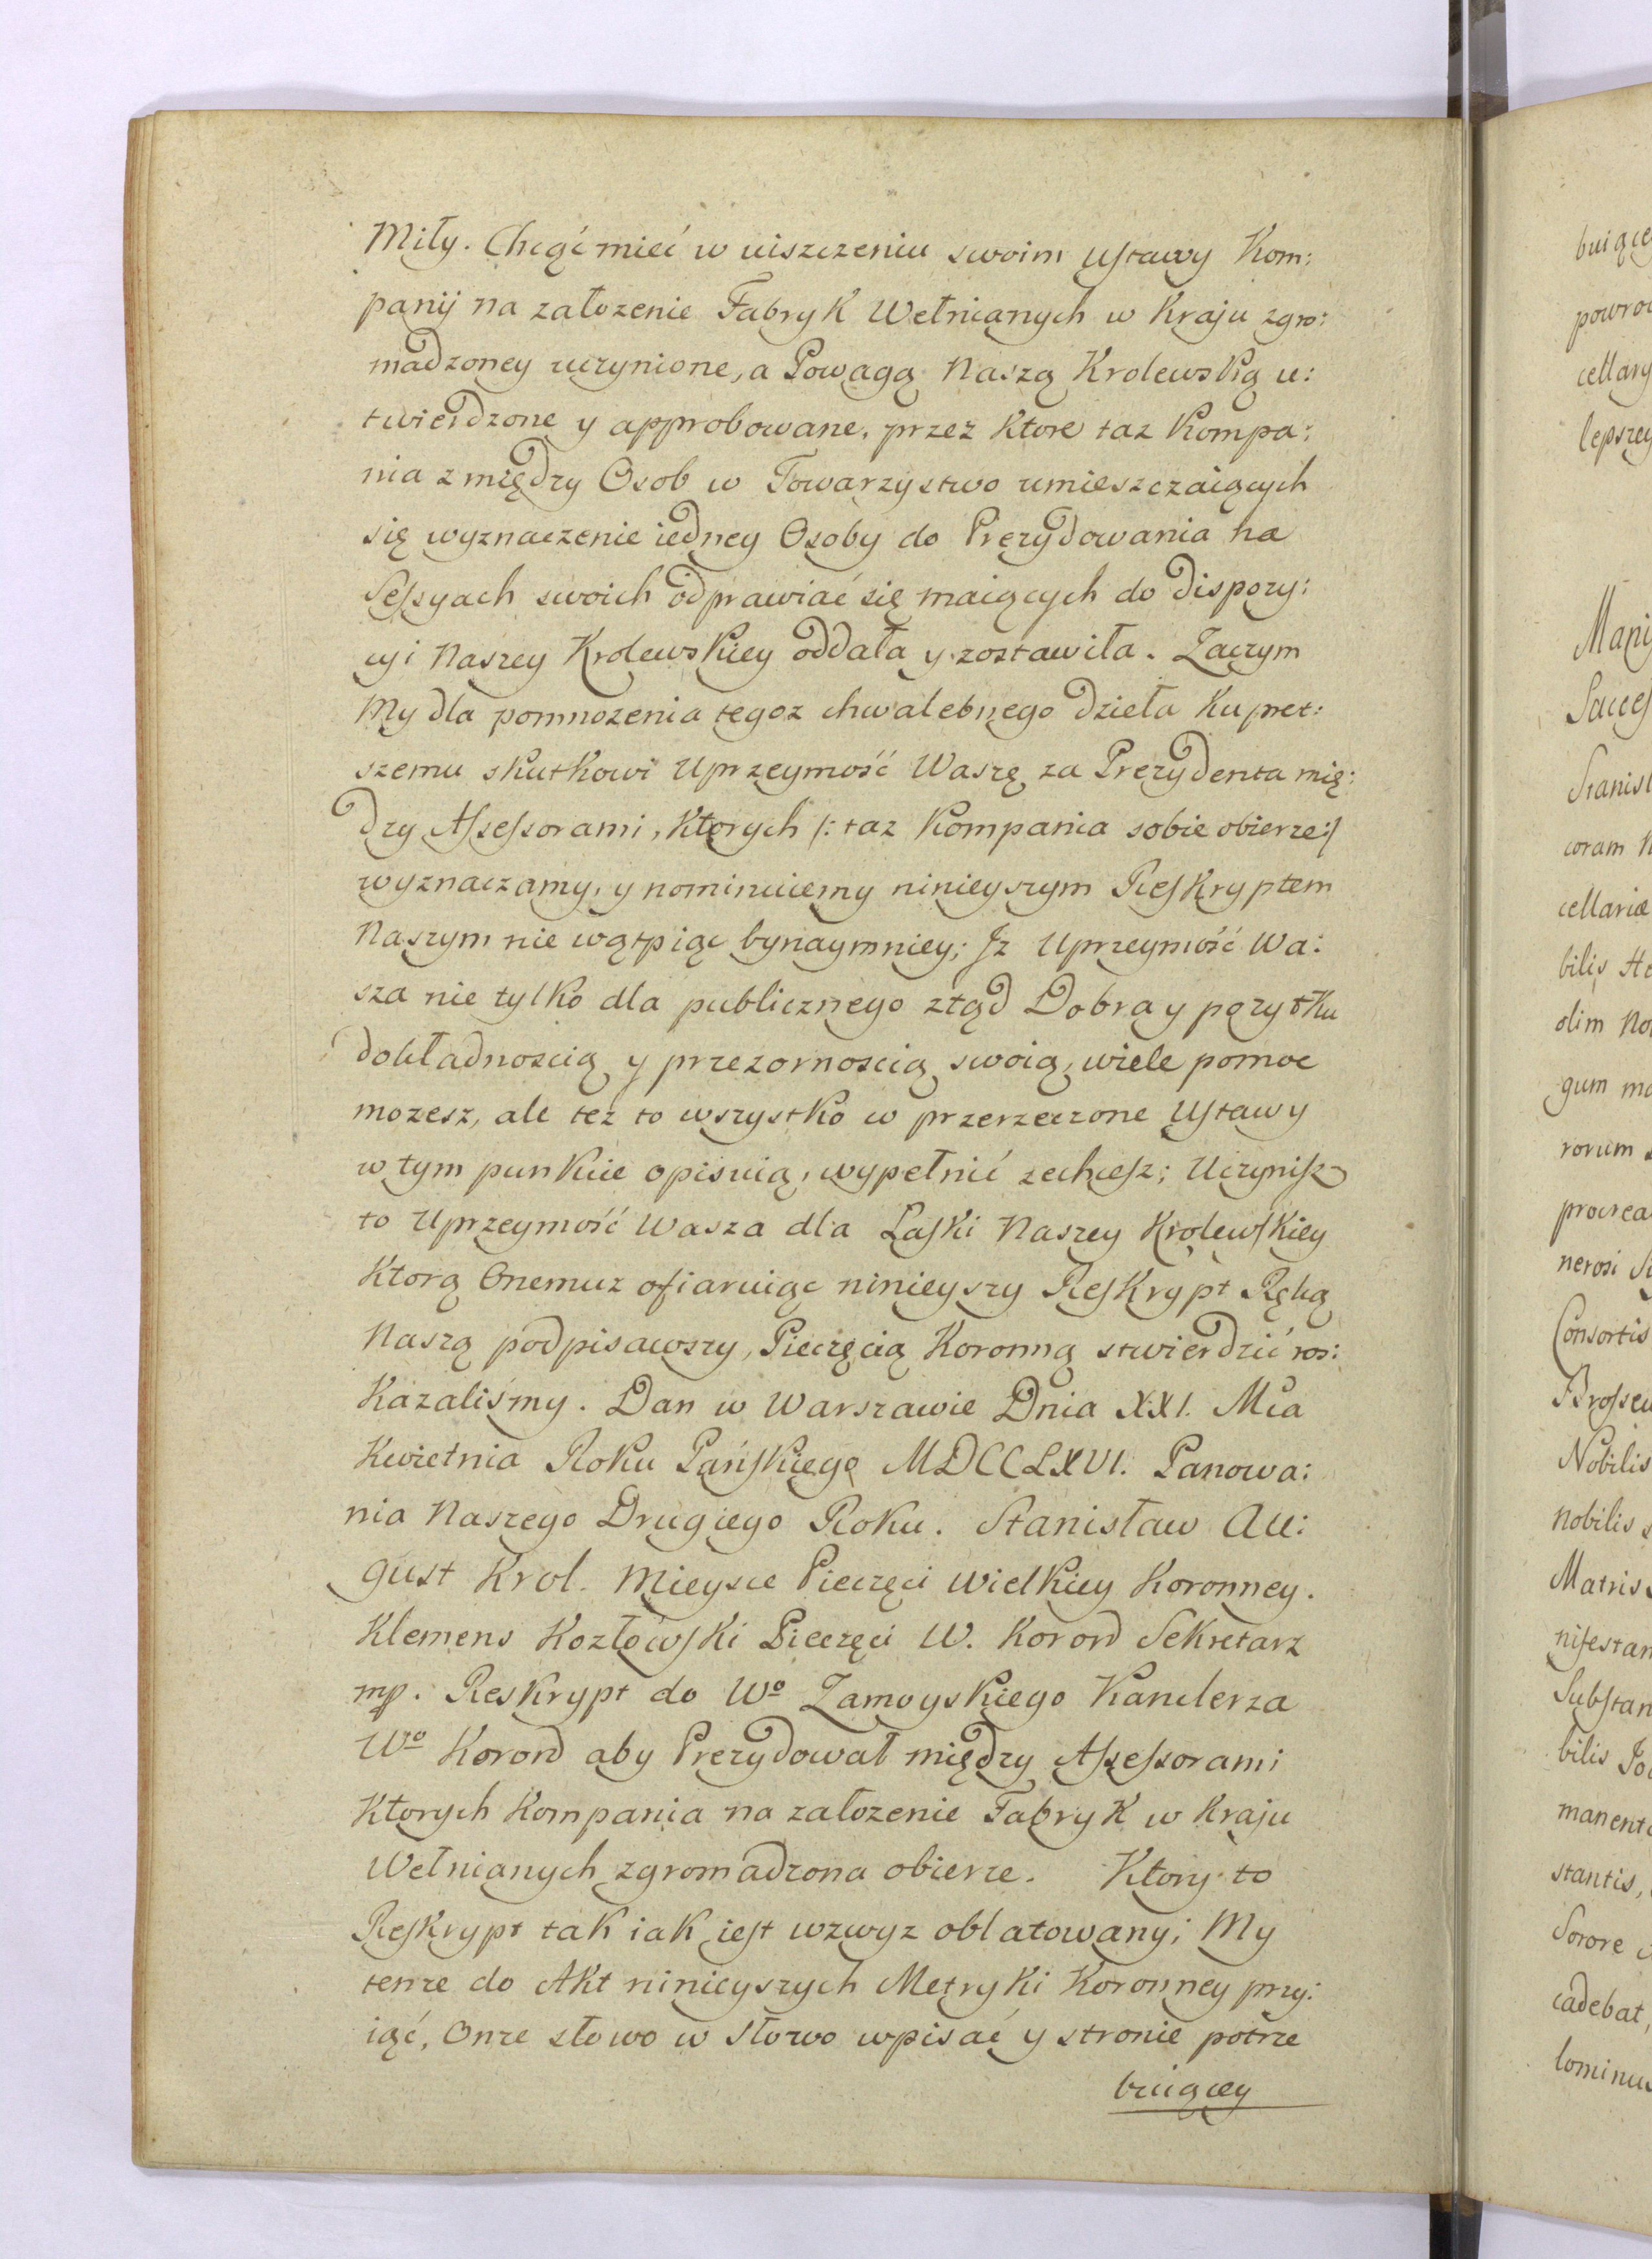 Miły. Chcąc mieć w uiszczeniu swoim Ustawy Kom:
panij na załozenie Fabryk Wełnianych w Kraju zgro:
madzoney uczynione, a Powagą Naszą Krolewską u:
twierdzone y approbowane, przez ktore taz Kompa:
nia z między Osob w Towarzystwo umieszczaiących
się wyznaczenie iedney Osoby do Prezydowania na
Sessyach swoich odprawiać się maiących do dispozy:
cyi Naszey Krolewskiey oddała y zostawiła. Zaczym
My dla pomnozenia tegoz chwalebnego dzieła ku pręt:
szemu skutkowi Uprzeymość Waszę za Prezydenta mię:
dzy Assessorami, ktorych /: taz Kompania sobie obierze :/
wyznaczamy, y nominuiemy ninieyszym Reskryptem
Naszym nie wątpiąc bynaymniey; Iz Uprzeymość Wa:
sza nie tylko dla publicznego ztąd Dobra y pozytku
dokładnoscią y przezornoscią swoią, wiele pomoc
mozesz, ale tez to wszystko w przerzeczone Ustawy
w tym punkcie opisuią, wypełnić zechcesz; Uczynisz
to Uprzeymość Wasza dla Łaski Naszey Krolewskiey
ktorą Onemuz ofiaruiąc ninieyszy Reskrypt Ręką
Naszą podpisawszy, Pieczęcią Koronną stwierdzić ros:
kazaliśmy. Dan w Warszawie Dnia XXI. Mca
Kwietnia Roku Pańskiego MDCCLXVI. Panowa:
nia Naszego Drugiego Roku. Stanisław Au:
gust Krol. Mieysce Pieczęci Wielkiey Koronney.
Klemens Kozłowski Pieczęci W. Koron Sekretarz
mp. Reskrypt do Wo Zamoyskiego Kanclerza
Wo Koron aby Prezydował między Assessorami
ktorych Kompania na załozenie Fabryk w Kraju
Wełnianych zgromadzona obierze. Ktory to
Reskrypt tak iak iest wzwyz oblatowany; My
tenze do Akt ninieyszych Metryki Koronney przy:
iąć, Onze słowo w Słowo wpisać y stronie potrze
buiącey
buiące
powro
cellary
lepszey
Stanisl
coram N
cellariæ
bilis
olim No
gum ma
rorum
procrea
nerosi
Consortis
Nobilis
nobilis
Matris
nifestan
Substan
bilis
manent
stantis,
Sorore
cadebat,
lominus